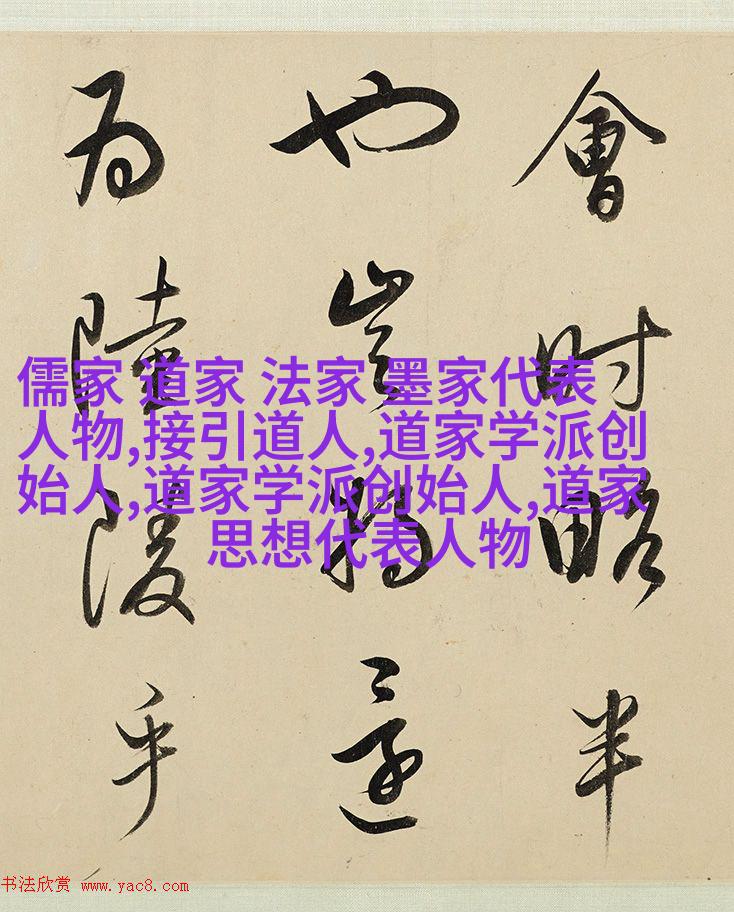 儒家 道家 法家 墨家代表
人物,接引道人,道家学派创
始人,道家学派创始人,道家
思想代表人物
會时略半
也豈物
为陵乎
书法欣赏 www.yac8.com